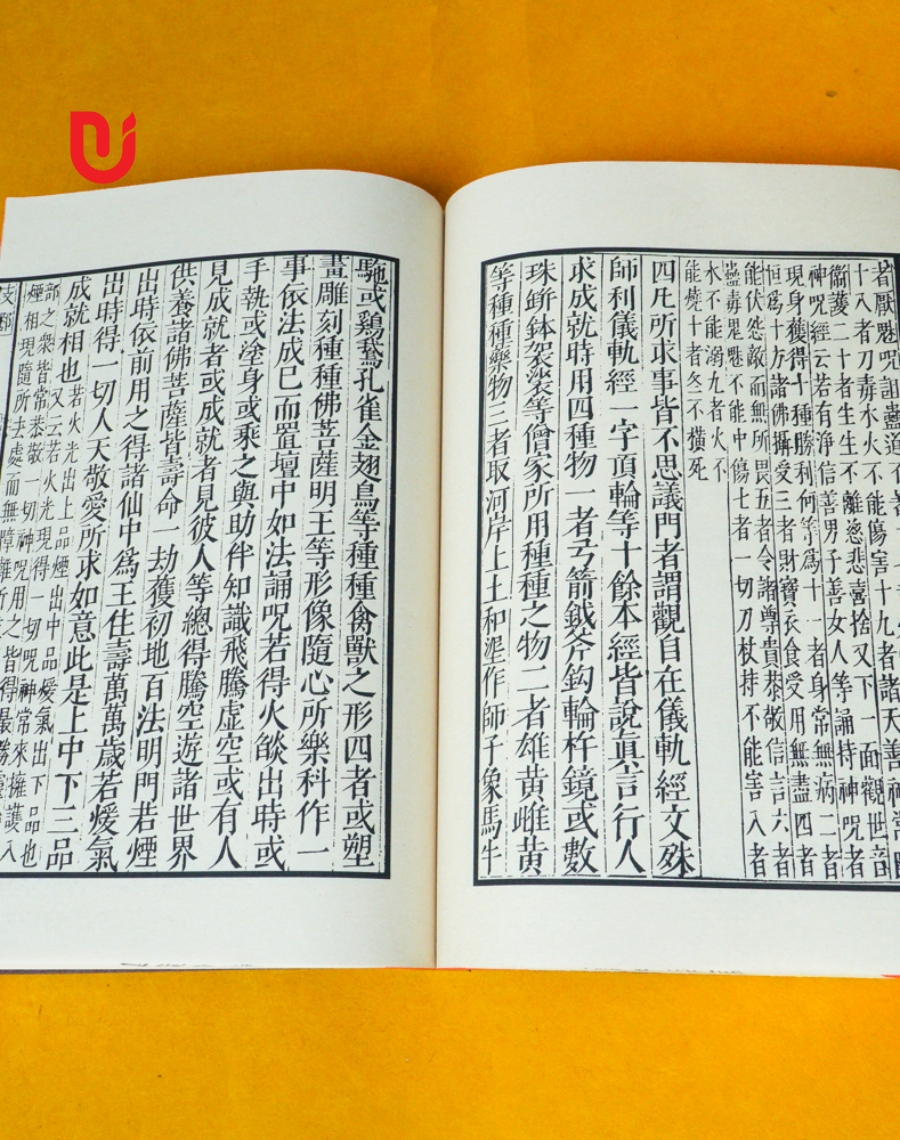 者厭魅呪詛蠱道不
十八者刀毒水火不能傷害十九者諸天善神常
衞護二十者生生不離慈悲喜捨又下一面觀世音
神呪經云若有淨信善男子善女人等誦持神呪者
現身獲得十種勝利何等爲十一者身常無病二者
恒爲十方諸佛攝受三者財寶衣食受用無盡四者
能伏怨敵而無所畏五者令諸尊貴恭敬信言六者
蠱毒鬼魅不能中傷七者一切刀杖持不能害八者
水不能溺九者火不
能燒十者冬不橫死
四凡所求事皆不思議門者謂觀自在儀軌經文殊
師利儀軌經一字頂輪等十餘本經皆說眞言行人
求成就時用四種物一者弓箭鉞斧鈎輪杵鏡或數
珠缾鉢袈裟等僧家所用種種之物二者雄黃雌黃
等種種藥物三者取河岸上土和泥作師子象馬牛
駞或鷄鵝孔雀金翅鳥等種種禽獸之形四者或塑
畫雕刻種種佛菩薩明王等形像隨心所樂科作一
事依法成已而置壇中如法誦呪若得火燄出時或
手執或塗身或乘之與助伴知識飛騰虛空或有人
見成就者或成就者見彼人等總得騰空遊諸世界
供養諸佛菩薩皆壽命一劫獲初地百法明門若煙
出時依前用之得諸仙中爲王住壽萬萬歲若煖氣
出時得一切人天敬愛所求如意此是上中下三品
成就相也
若火光出上品煙出中品煖氣出下品也
又云若火光現得一切呪神常來擁護入
部之衆皆常恭敬一切神呪用之皆得最勝
煙相現隨所去處而無障難所